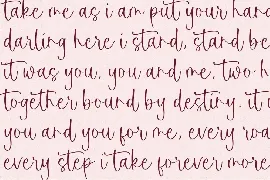 take me as i am put your hand
darling here i stand, stand be
it was you, you and me, two h
together bound by destiny. it
you and you for me, every roa
every step i take forever more